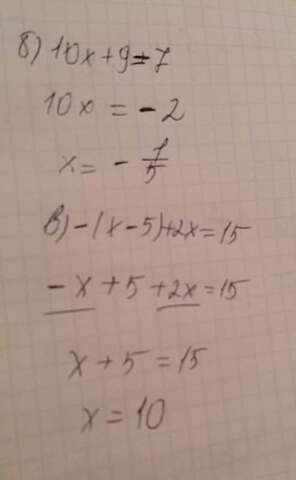 б) 10x+9=7
10x = -2
x = - 1/5
в) -(x-5)+2x=15
-x+5+2x=15
x+5=15
x=10